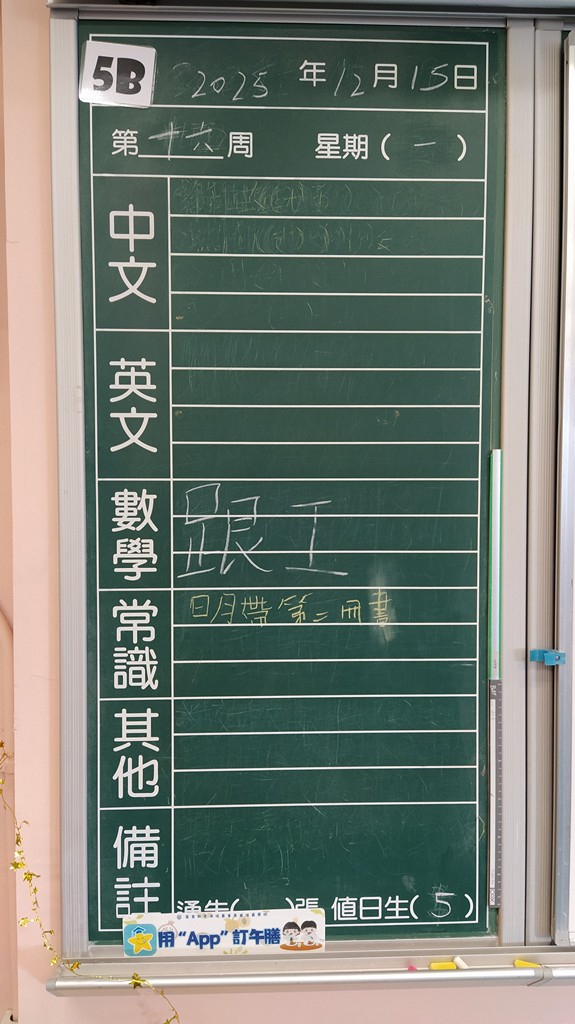 5B
2025 年 12 月 15 日
第 十六 周 星期 ( 一 )
中文
英文
數學 跟工
常識 日月帶第二冊書
其他
備註
通告( )張 值日生( 5 )
用 “App” 訂午膳